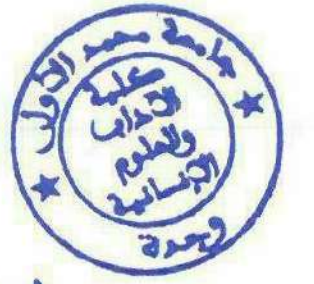 جامعة محمد الأول
كلية
الآداب
والعلوم
الإنسانية
وجدة